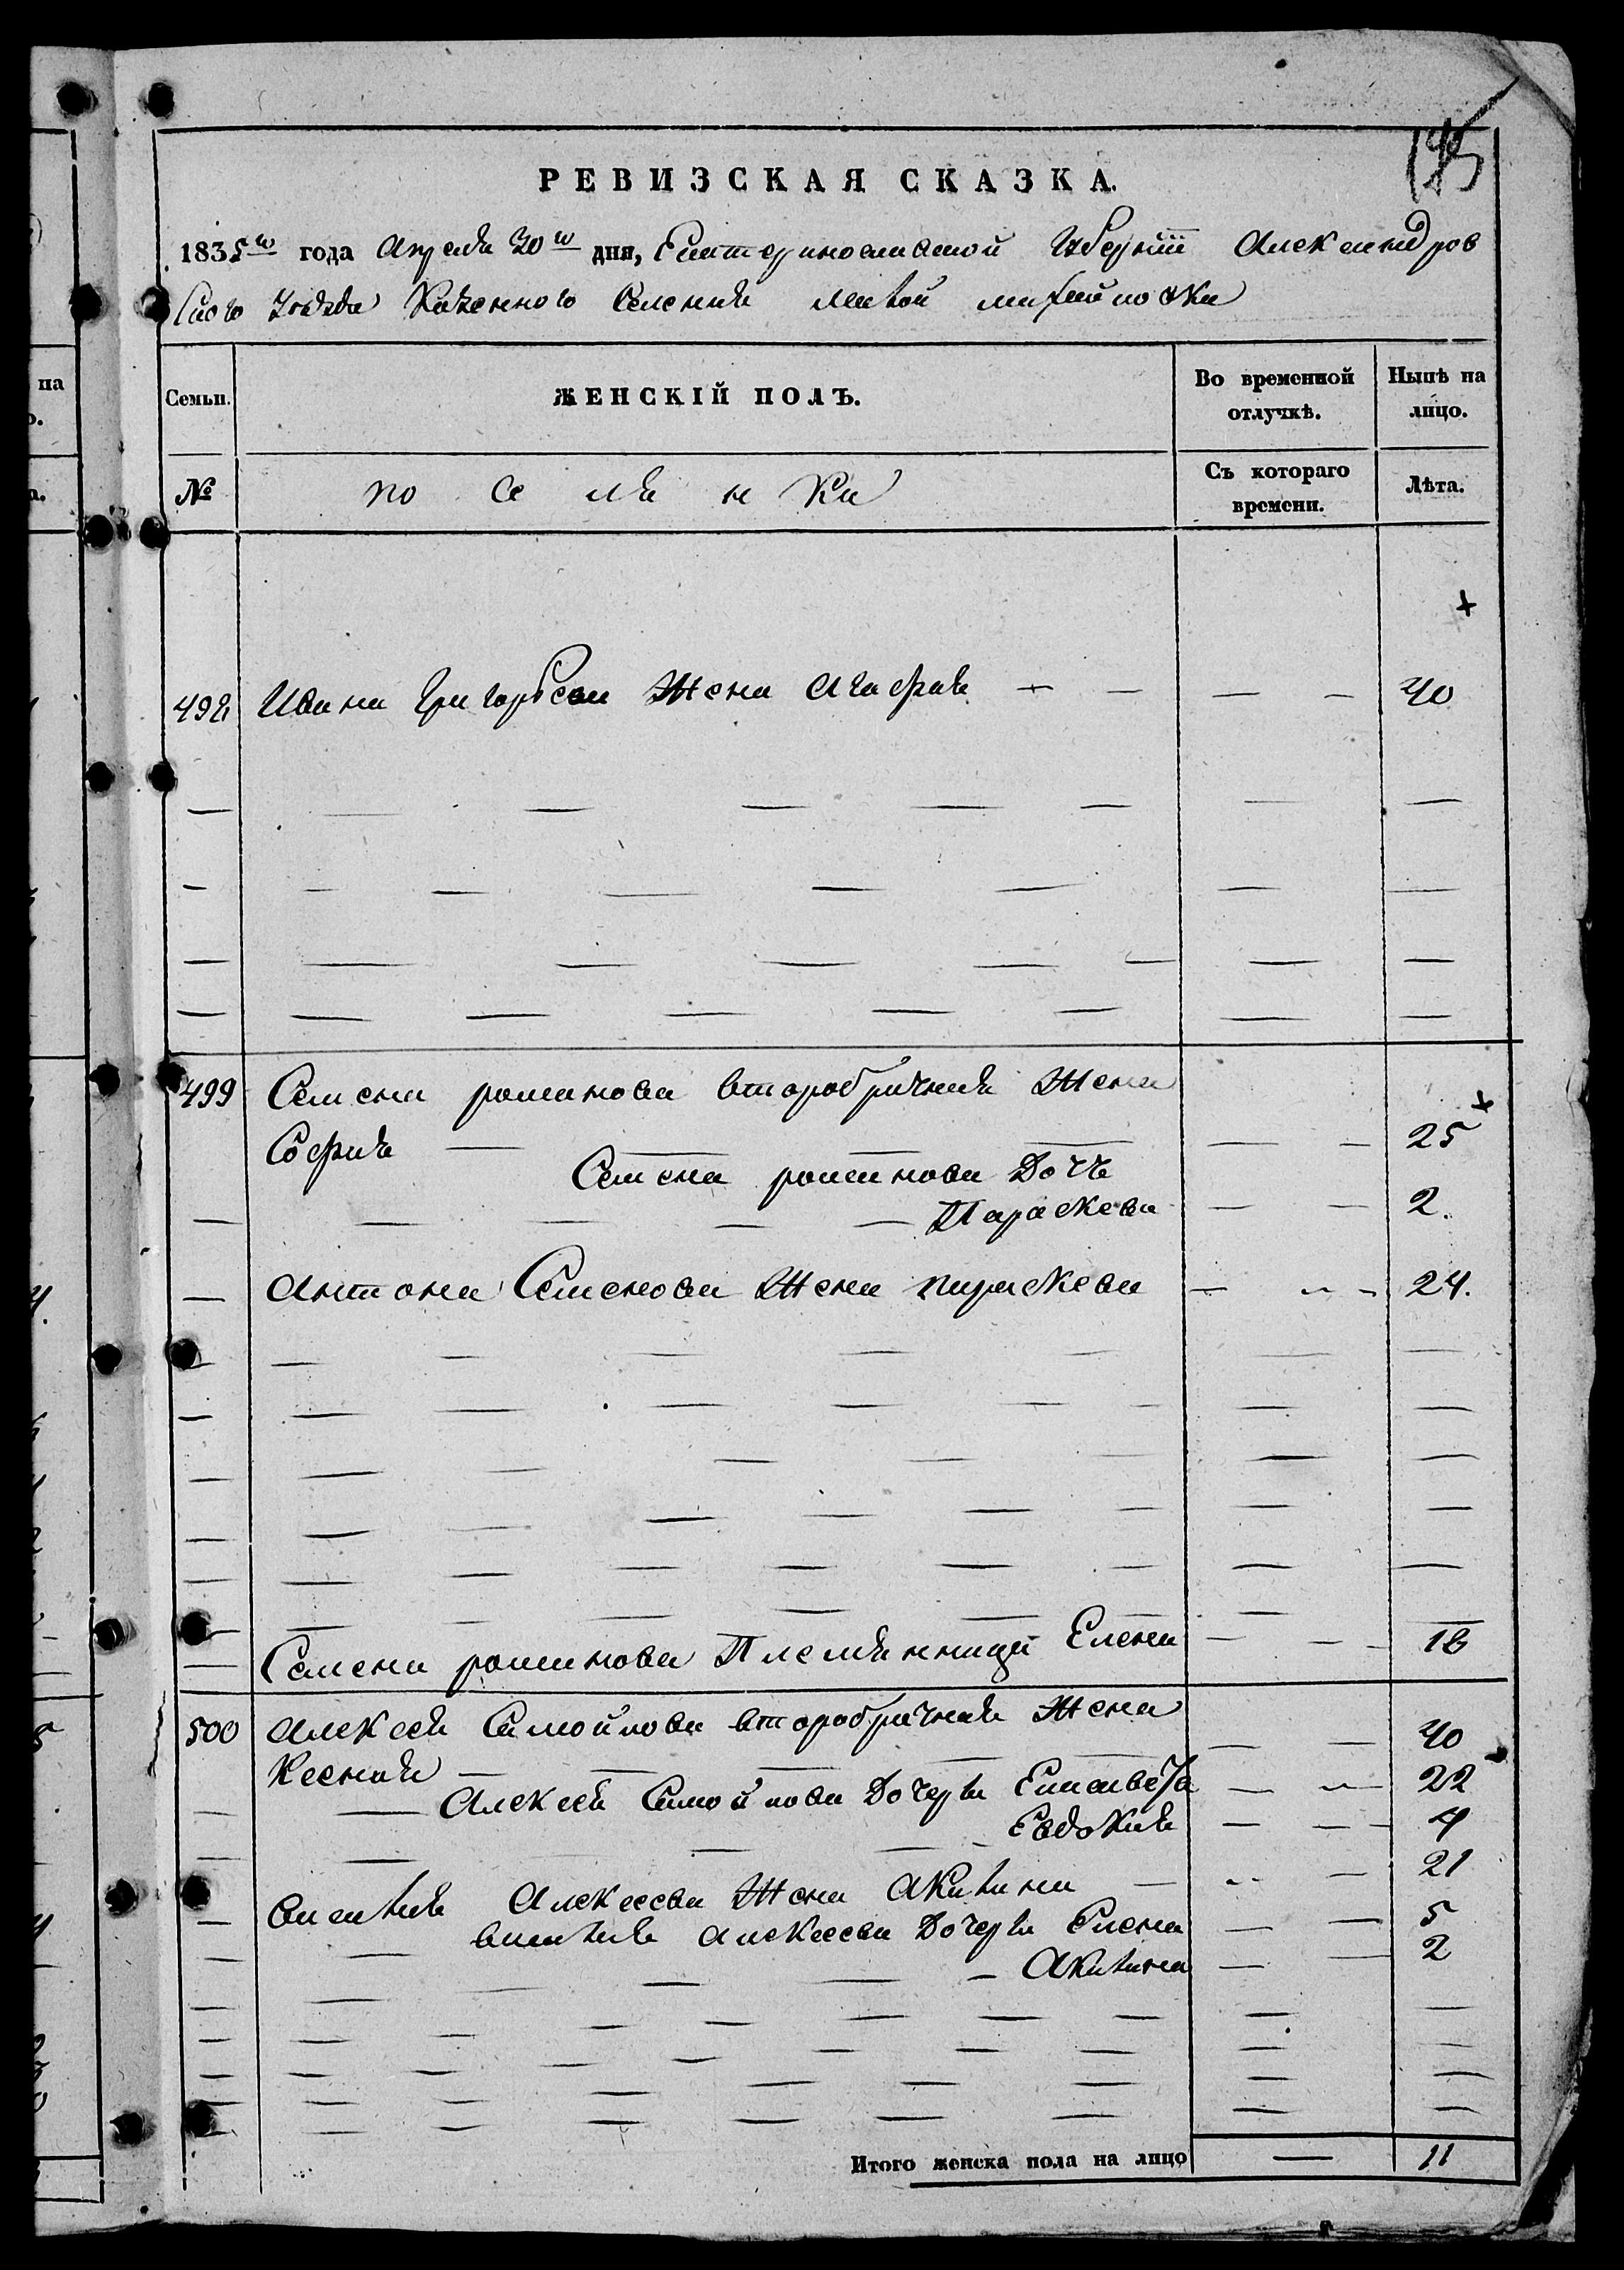 195
РЕВИЗСКАЯ СКАЗКА.
1835го года Апреля 30го дня, Екатеринославской Губернии Александров
ского Уезда Казенного Селения Малой михайловки
Семьи. ЖЕНСКІЙ ПОЛЪ. Во временной отлучкѣ. Нынѣ на лицо.
№ по се ля н ки Съ котораго времени. Лѣта.
498 Ивана Григорьева Жена Агафия — — — — 40
499 Семена романова второбрачная Жена
София — — — — — 25
Семена романова Дочь
— — — — — Параскева — — 2.
— Антона Семенова Жена параскева — — 24.
— Семена романова Племянница Елена — — — 16
500 Алексея Самойлова второбрачная Жена
Ксения — — — — — — — 40
— — Алексея Самойлова Дочери Елисавета — — 22
— — — — Евдокия — — — 4
— Алексеева Жена Акилина — — — 21
— — Алексеева Дочери Елена — — 5
— — — — Акилина — — 2
Итого женска пола на лицо — 11
на
о.